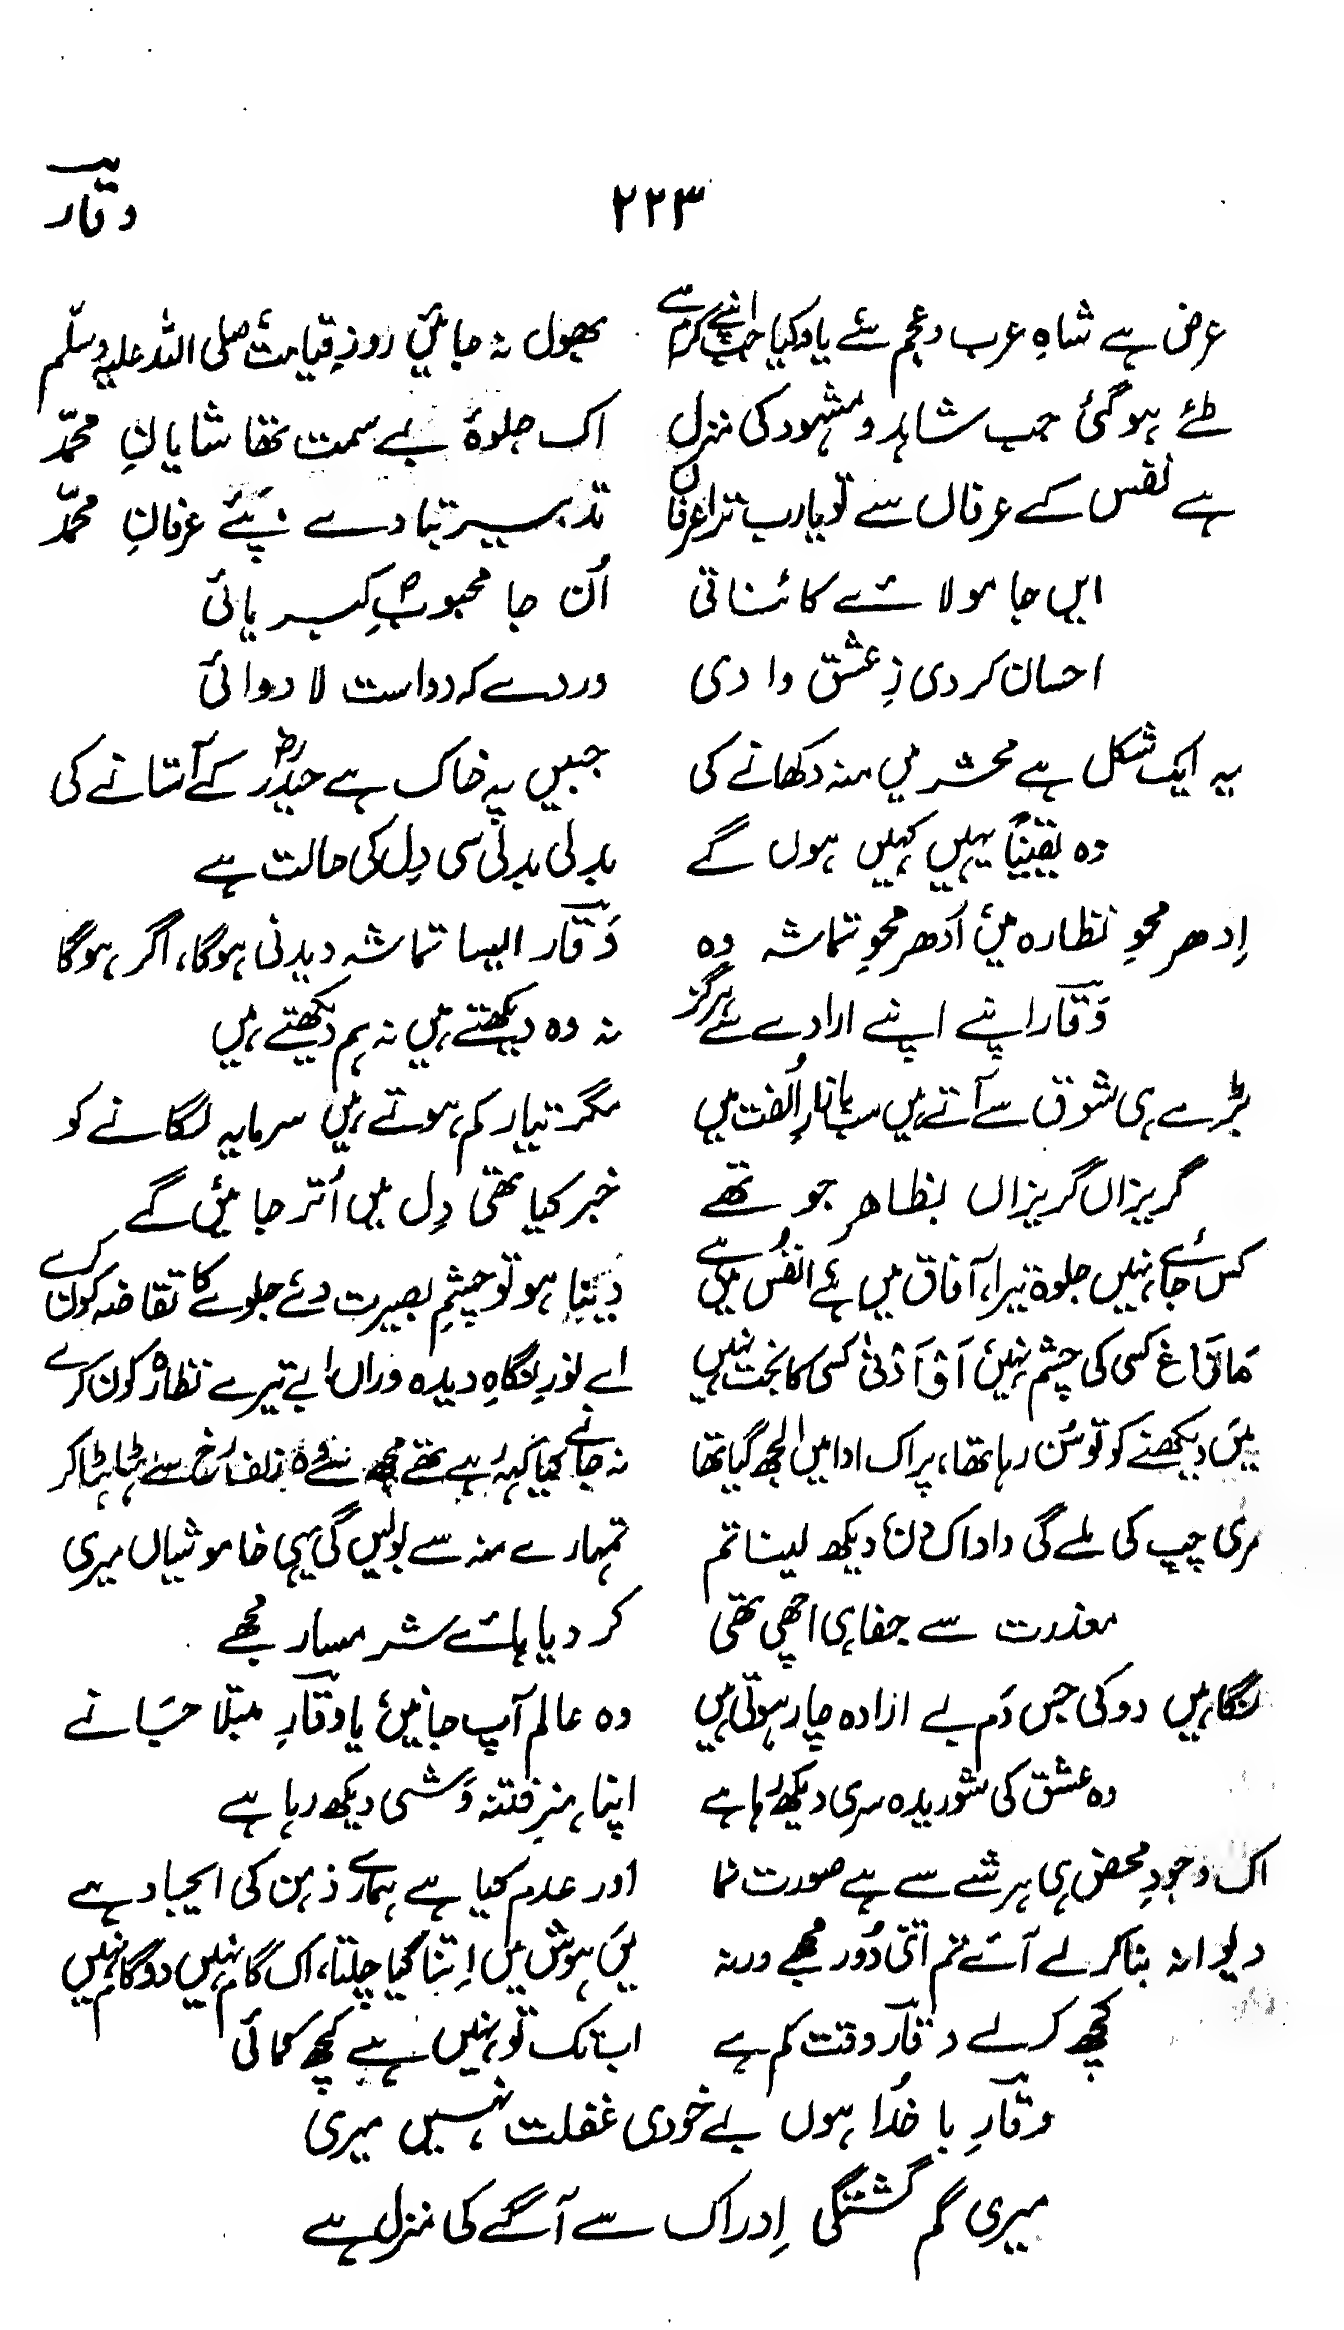 وقار ۲۲۳
عرض ہے شاہِ عرب و عجم سے یاد کیا جب اپنے کرم سے بھول نہ جائیں روزِ قیامت صلی اللہ علیہ وسلم
طے ہو گئی جب شاہد و مشہود کی منزل اک جلوۂ بے سمت تھا شایانِ محمدؐ
ہے نفس کے عرفاں سے تو یارب ترا عرفاں تدبیر بتا دے پئے عرفانِ محمدؐ
ایں جا مولائے کائناتی آں جا محبوبِؐ کبریائی
احسان کردی زِ عشق دادی دردے کہ دواست لا دوائی
یہ ایک شکل ہے محشر میں منہ دکھانے کی جبیں پہ خاک ہے حیدرؓ کے آستانے کی
وہ یقیناً یہیں کہیں ہوں گے بدلی بدلی سی دِل کی حالت ہے
اِدھر محوِ نظارہ میں اُدھر محوِ تماشہ وہ وقار ایسا تماشہ دیدنی ہوگا، اگر ہوگا
وقار اپنے اپنے ارادے سے ہرگز نہ وہ دیکھتے ہیں نہ ہم دیکھتے ہیں
بڑے ہی شوق سے آتے ہیں سب بازارِ اُلفت میں مگر تیار کم ہوتے ہیں سرمایہ لگانے کو
گریزاں گریزاں بظاہر جو تھے خبر کیا تھی دِل میں اُتر جائیں گے
کس جائے نہیں جلوہ تیرا، آفاق میں ہے انفُس میں ہے دینا ہو تو چشمِ بصیرت دے جلوے کا تقاضہ کون کرے
مازاغ کسی کی چشم نہیں اَوْ اَدْنیٰ کسی کا بخت نہیں اے نورِ نگاہِ دیدہ وراں بے تیرے نظارہ کون کرے
میں دیکھنے کو تو سُن رہا تھا، پر اک ادا میں الجھ گیا تھا نہ جانے کیا کہہ رہے تھے مجھ سے وہ زلف رُخ سے ہٹا ہٹا کر
مری چپ کی ملے گی داد اک دن دیکھ لینا تم تمہارے منہ سے بولیں گی یہی خاموشیاں میری
معذرت سے جفا ہی اچھی تھی کر دیا ہائے شرمسار مجھے
نگاہیں دو کی جس دَم بے ارادہ چار ہوتی ہیں وہ عالم آپ جانیں یا وقارِ مبتلا جانے
وہ عشق کی شوریدہ سری دیکھ رہا ہے اپنا ہنرِ فتنہ وَشی دیکھ رہا ہے
اک وجودِ محض ہی ہر شے سے ہے صورت نما اور عدم کیا ہے ہمارے ذہن کی ایجاد ہے
دیوانہ بنا کر لے آئے تم اتنی دُور مجھے ورنہ میں ہوش میں اِتنا کیا چلتا، اک گام نہیں دو گام نہیں
کچھ کرلے وقار وقت کم ہے اب تک تو نہیں ہے کچھ کمائی
وقارِ با خُدا ہوں بے خودی غفلت نہیں میری
میری گم گشتگی اِدراک سے آگے کی منزل ہے